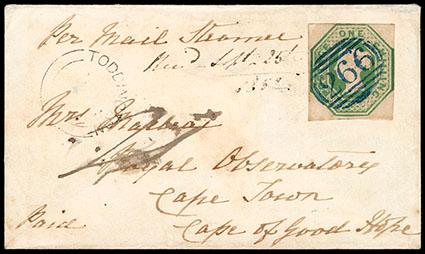 Per Mail Steamer
Recd Sept 25th
TODDIN
ONE
266
Mrs Maclear
Royal Observatory
Cape Town
Paid
Cape of Good Hope